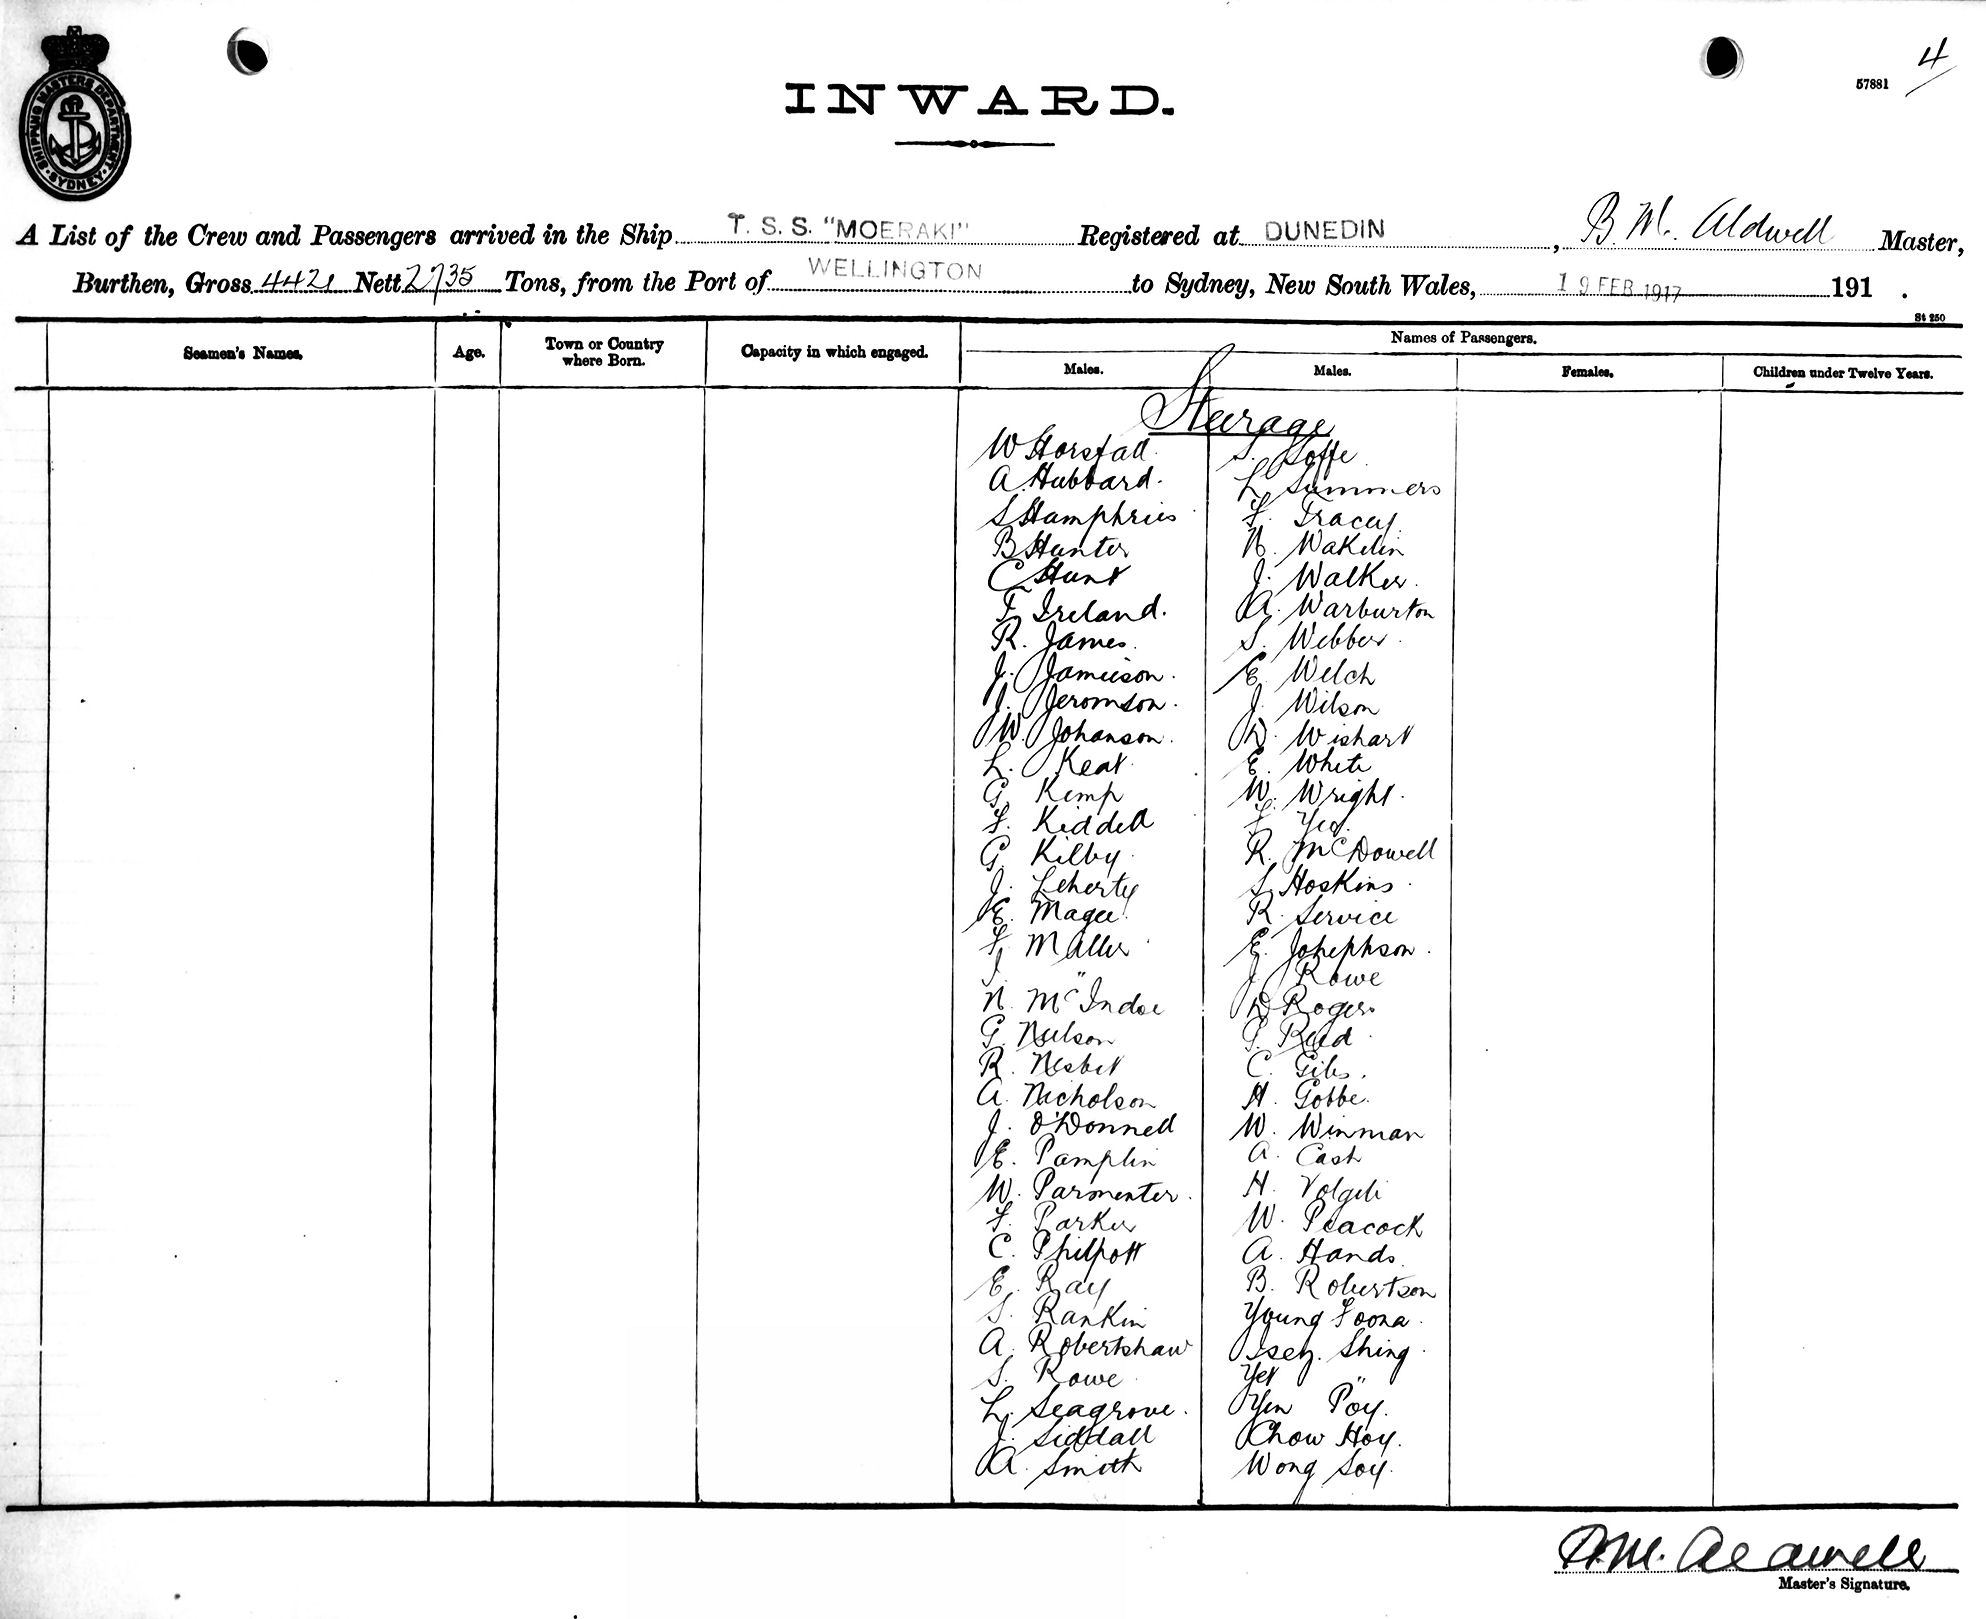 4
57881
SHIPPING MASTERS DEPARTMENT SYDNEY
INWARD.
A List of the Crew and Passengers arrived in the Ship T. S. S. "MOERAKI" Registered at DUNEDIN, B. M. Aldwell Master,
Burthen, Gross 4421 Nett 2735 Tons, from the Port of WELLINGTON to Sydney, New South Wales, 19 FEB 1917 191 .
St 250
Seamen's Names. Age. Town or Country where Born. Capacity in which engaged. Names of Passengers.
Males. Males. Females. Children under Twelve Years.
Steerage
W Horsfall
A. Hubbard.
S Humphries
B Hunter
C Hunt
F. Ireland.
R. James.
J. Jamieson.
J. Jeromson.
W. Johanson.
L. Keat
G. Kemp
F. Kiddell
G. Kilby.
J. Leherty
E. Magee
F. Miller
J. "
N. McIndoe
G. Neilson
R. Nesbit
A. Nicholson
J. O'Donnell
E. Pamplin
W. Parmenter.
F. Parker
C. Philpott
E. Ray
S. Rankin
A. Robertshaw
S. Rowe
L. Seagrove.
J. Siddall
A. Smith
S.
L. Summers
F. Tracey.
N. Wakelin
J. Walker.
A. Warburton
S. Webber.
E. Welch
J. Wilson
D. Wishart
E. White
W. Wright.
F. Yeo.
R. McDowell
S. Hoskins.
R. Service
E. Johephson.
J. Rowe
D Rogers
G. Reid
C. Giles.
H. Gobbe.
W. Winman
A. Cash
H.
W. Peacock
A. Hands.
B. Robertson
Young Foona.
Shing.
Yet "
Yen Poy.
Chow Hoy.
Wong Soy.
B. M. Aldwell
Master's Signature.